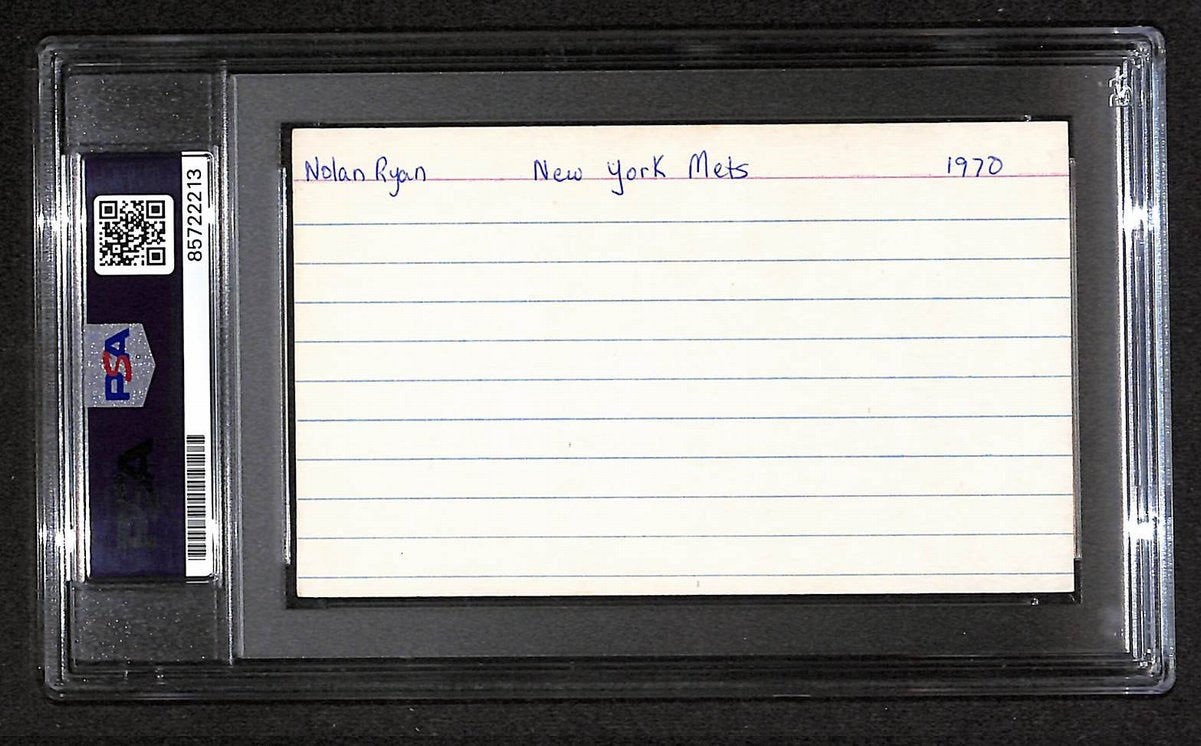 Nolan Ryan New York Mets 1970
85722213
PSA
PSA